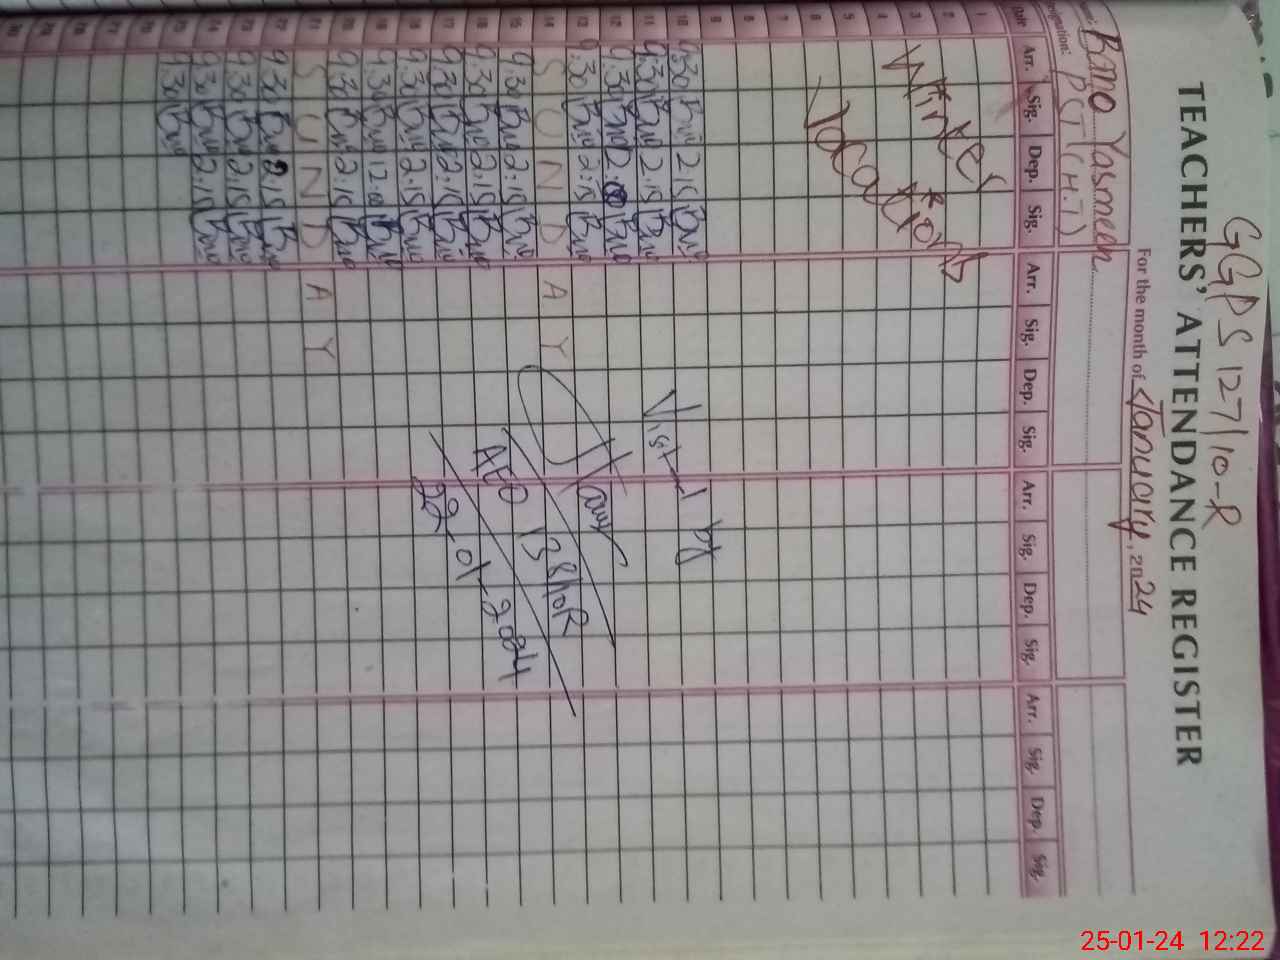 GGPS 127/10-R
TEACHERS' ATTENDANCE REGISTER
For the month of January, 2024
Name: Bano Yasmeen
Designation: PST (H.T)
Date Arr. Sig. Dep. Sig. Arr. Sig. Dep. Sig. Arr. Sig. Dep. Sig. Arr. Sig. Dep. Sig.
1
2
3
4
5
6
7
8
9
Winter
Vacations
10 9:30 Bano 2:15 Bano
11 9:30 Bano 2:15 Bano
12 9:30 Bano 12:00 Bano
13 9:30 Bano 2:15 Bano
14 S U N D A Y
15 9:30 Bano 2:15 Bano
16 9:30 Bano 2:15 Bano
17 9:30 Bano 2:15 Bano
18 9:30 Bano 2:15 Bano
19 9:30 Bano 12:00 Bano
20 9:30 Bano 2:15 Bano
21 S U N D A Y
22 9:30 Bano 2:15 Bano
23 9:30 Bano 2:15 Bano
24 9:30 Bano 2:15 Bano
25 9:30 Bano
26
27
28
29
30
Visited by
AEO
22-01-2024
25-01-24 12:22